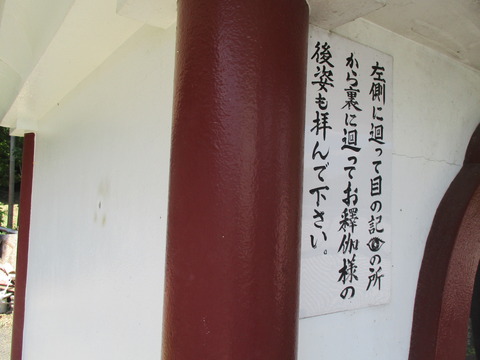 左側に迴って目の記👁の所
から裏に迴ってお釋伽様の
後姿も拝んで下さい。